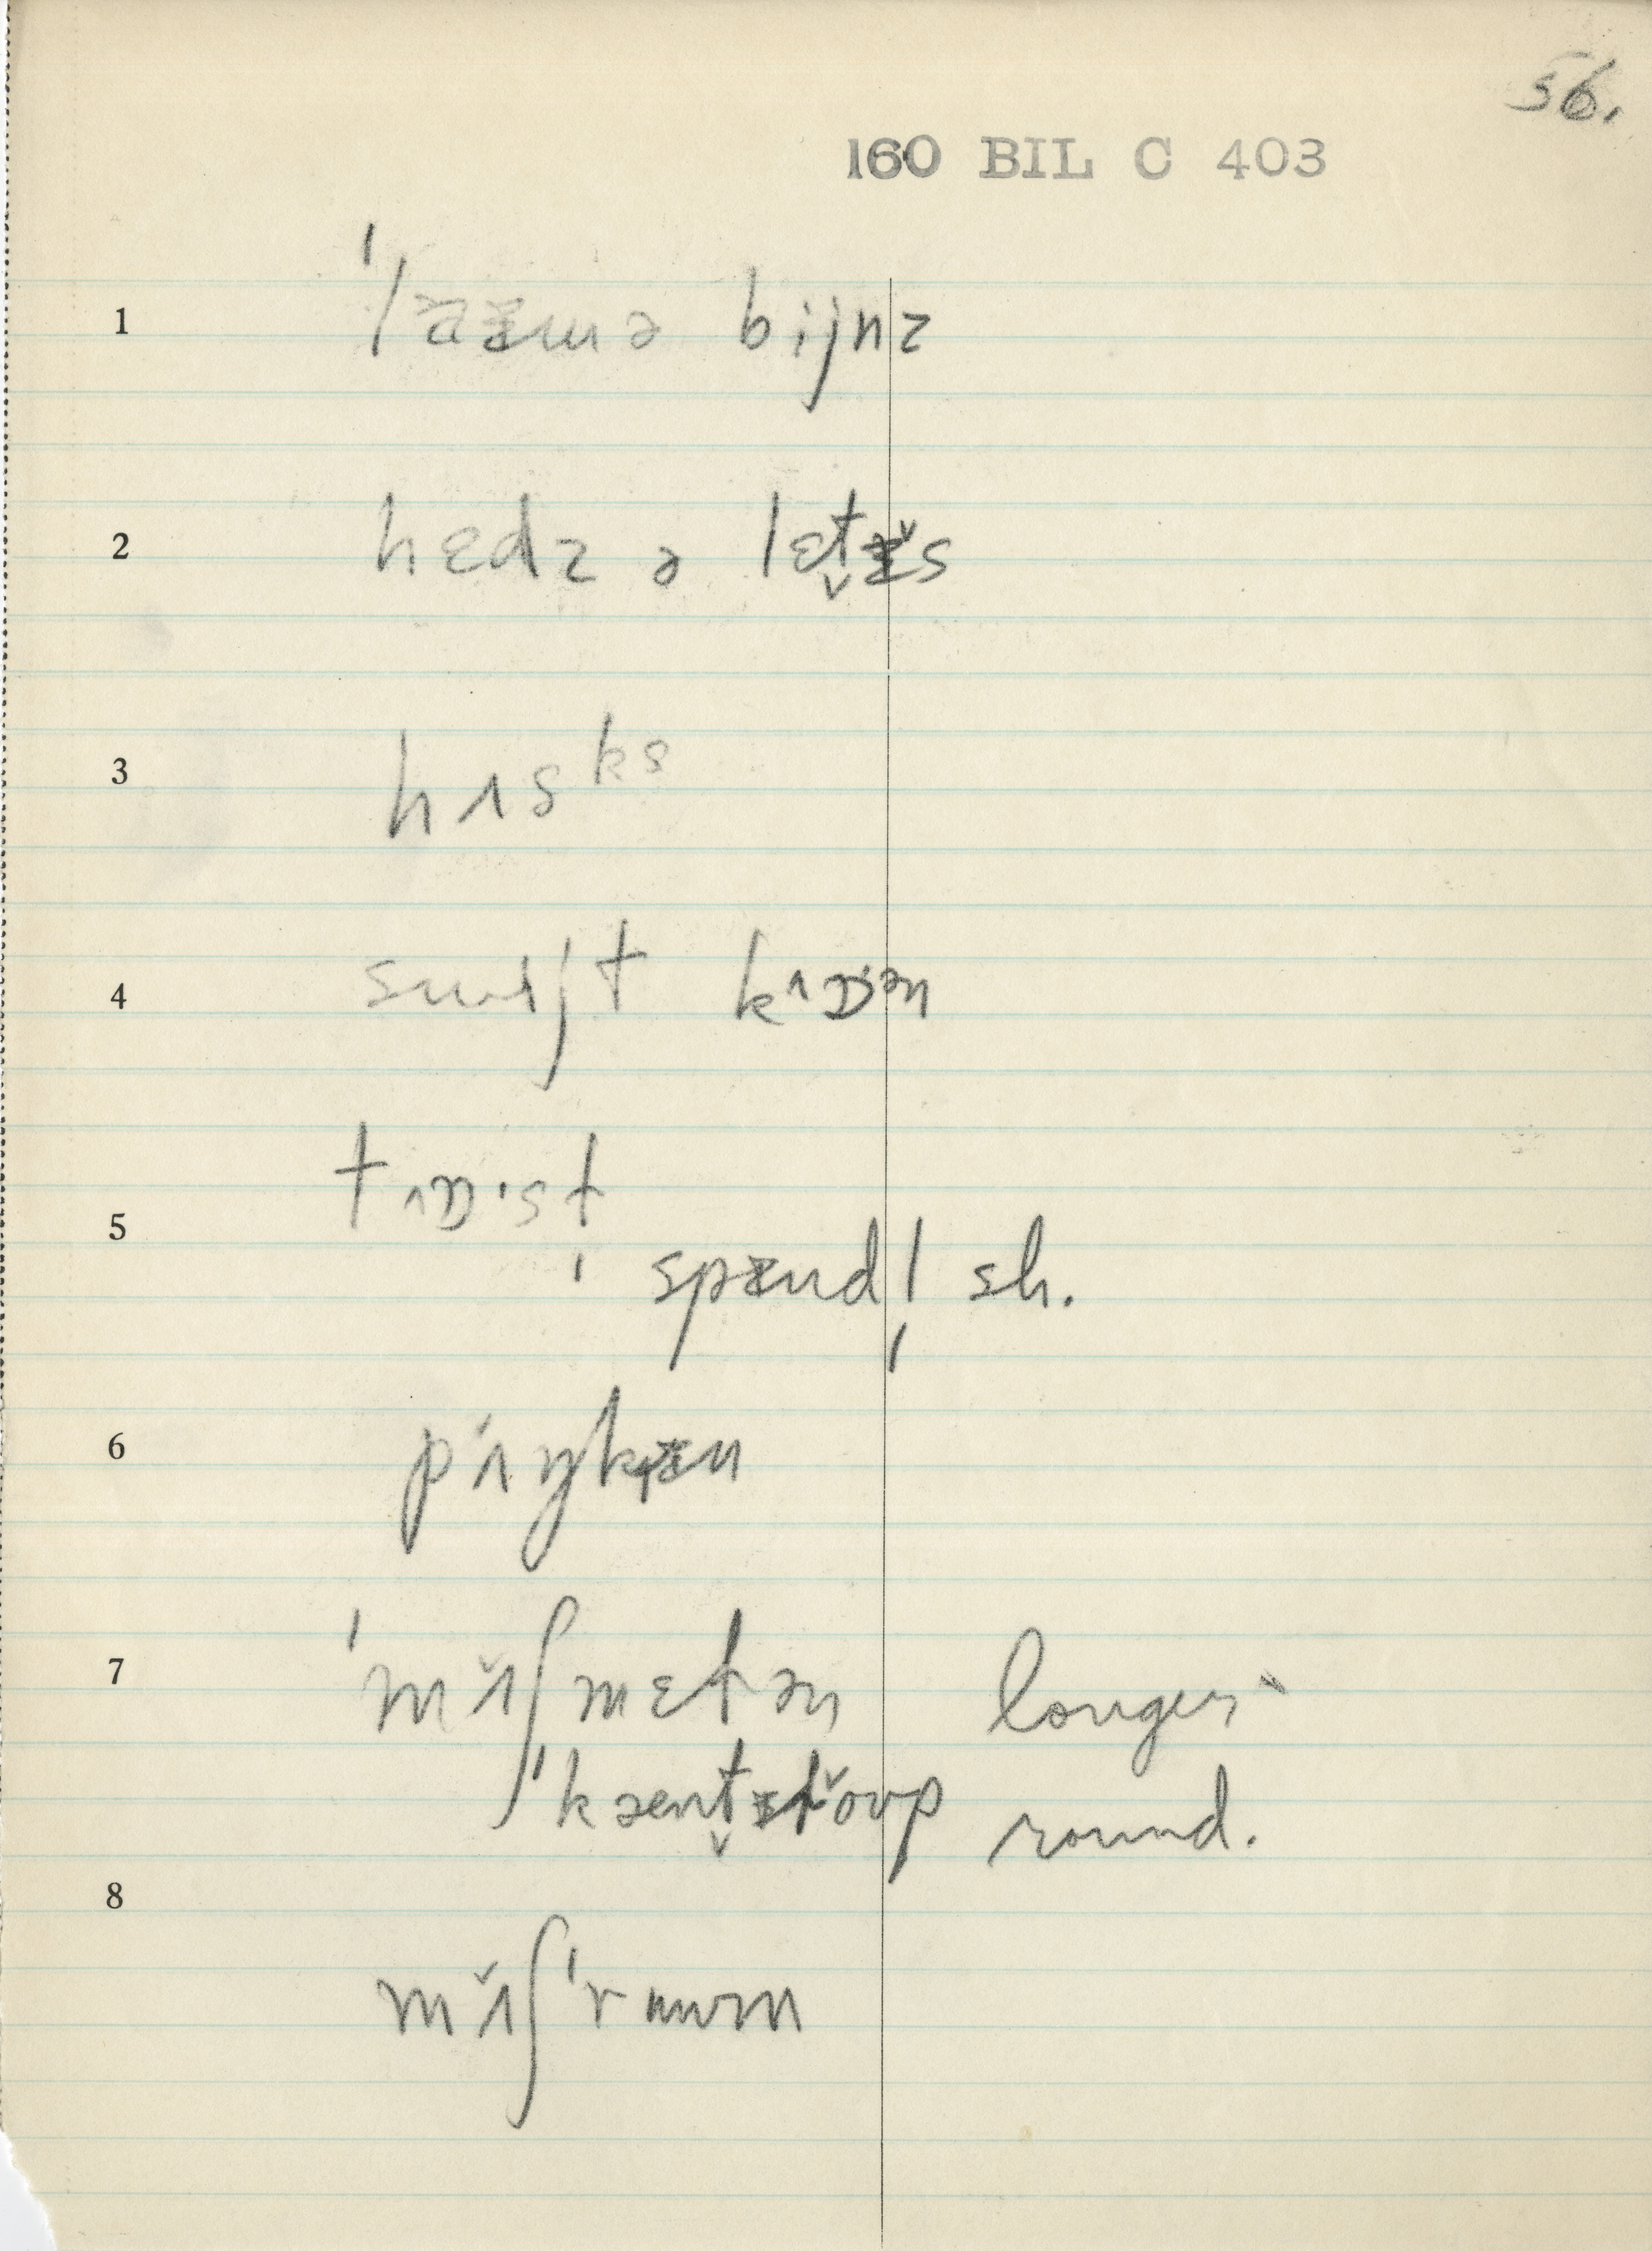 56.
160 BIL C 403
1 ˈlaᵻmə bijnz
2 hɛdz ə lɛt̬ᵻ̆s
3 hʌsᵏˢ
4 swijt kʌɒˑən
5 tʌɒˑst̩
spænd| sh.
6 pʌˈŋkᵻn
7 ˈmʌ̆ʃmɛtən longer
ˈkæent̬əloʊp round.
8 mʌ̆ʃˈruwm